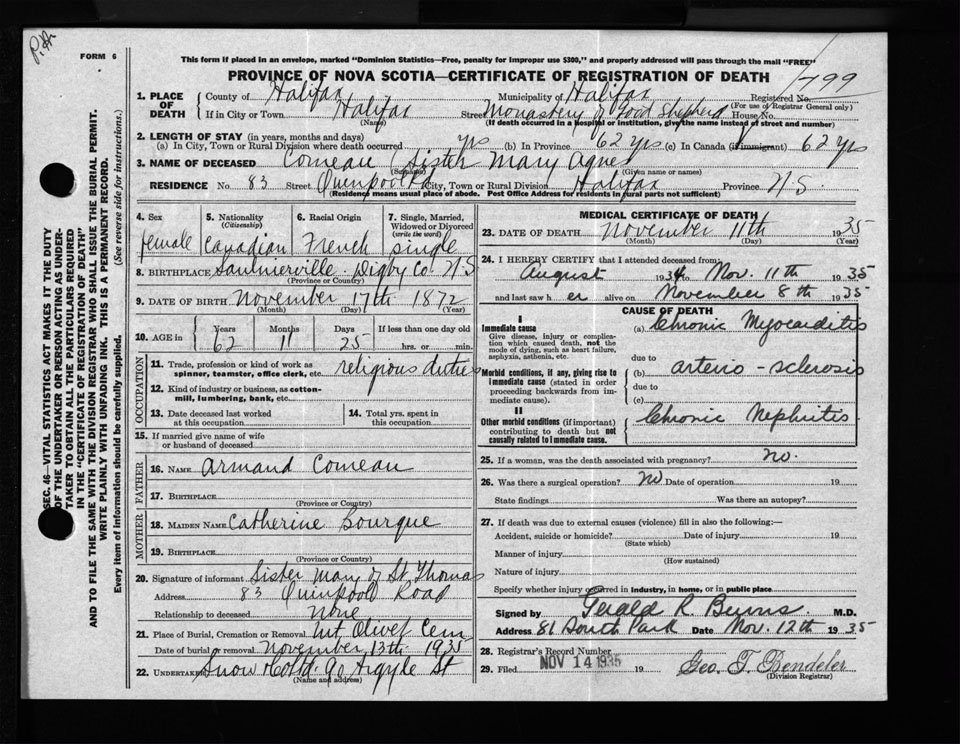 P.H.
FORM 6
This form if placed in an envelope, marked "Dominion Statistics—Free, penalty for improper use $300," and properly addressed will pass through the mail "FREE"
PROVINCE OF NOVA SCOTIA—CERTIFICATE OF REGISTRATION OF DEATH
Registered No. 799
(For use of Registrar General only)
1. PLACE OF DEATH
County of Halifax Municipality of Halifax
If in City or Town Halifax Street Monastery of Good Shepherd House No.
(Name) (If death occurred in a hospital or institution, give the name instead of street and number)
2. LENGTH OF STAY (in years, months and days)
(a) In City, Town or Rural Division where death occurred yrs (b) In Province 62 yrs (c) In Canada (if immigrant) 62 yrs
3. NAME OF DECEASED Comeau (Sister Mary Agnes)
(Surname) (Given name or names)
RESIDENCE No 83 Street Quinpool Rd City, Town or Rural Division Halifax Province N.S.
(Residence means usual place of abode. Post Office Address for residents in rural parts not sufficient)
4. Sex female
5. Nationality (Citizenship) Canadian
6. Racial Origin French
7. Single, Married, Widowed or Divorced (write the word) single
8. BIRTHPLACE Saulnierville Digby Co. N.S
(Province or Country)
9. DATE OF BIRTH November 17th 1872
(Month) (Day) (Year)
10. AGE in Years 62 Months 11 Days 25 If less than one day old
hrs. or min.
OCCUPATION
11. Trade, profession or kind of work as spinner, teamster, office clerk, etc. religious duties
12. Kind of industry or business, as cotton-mill, lumbering, bank, etc.
13. Date deceased last worked at this occupation
14. Total yrs. spent in this occupation
15. If married give name of wife or husband of deceased
FATHER
16. NAME Armand Comeau
17. BIRTHPLACE
(Province or Country)
MOTHER
18. MAIDEN NAME Catherine Bourque
19. BIRTHPLACE
(Province or Country)
20. Signature of informant Sister Mary of St. Thomas
Address 83 Quinpool Road
Relationship to deceased None
21. Place of Burial, Cremation or Removal Mt Olivet Cem
Date of burial or removal November 13th 1935
22. UNDERTAKER Snow & Co Ltd 90 Argyle St
(Name and address)
MEDICAL CERTIFICATE OF DEATH
23. DATE OF DEATH November 11th 1935
(Month) (Day) (Year)
24. I HEREBY CERTIFY that I attended deceased from:
August 1934 to Nov. 11th 1935
and last saw h er alive on November 8th 1935
CAUSE OF DEATH
I
Immediate cause
Give disease, injury or complication which caused death, not the mode of dying, such as heart failure, asphyxia, asthenia, etc.
(a) Chronic Myocarditis
due to
Morbid conditions, if any, giving rise to immediate cause (stated in order proceeding backwards from immediate cause).
(b) arterio-sclerosis
due to
(c)
II
Other morbid conditions (if important) contributing to death but not causally related to immediate cause.
Chronic Nephritis
25. If a woman, was the death associated with pregnancy? No.
26. Was there a surgical operation? No Date of operation 19
State findings Was there an autopsy?
27. If death was due to external causes (violence) fill in also the following:—
Accident, suicide or homicide? Date of injury 19
(State which)
Manner of injury
(How sustained)
Nature of injury
Specify whether injury occurred in industry, in home, or in public place
Signed by Gerald R. Burns M.D.
Address 81 South Park Date Nov. 12th 1935
28. Registrar's Record Number
29. Filed NOV 14 1935 19 Geo. T.
(Division Registrar)
SEC. 46—VITAL STATISTICS ACT MAKES IT THE DUTY
OF THE UNDERTAKER OR PERSON ACTING AS UNDER-
TAKER TO OBTAIN ALL THE PARTICULARS REQUIRED
IN THE "CERTIFICATE OF REGISTRATION OF DEATH"
AND TO FILE THE SAME WITH THE DIVISION REGISTRAR WHO SHALL ISSUE THE BURIAL PERMIT.
WRITE PLAINLY WITH UNFADING INK. THIS IS A PERMANENT RECORD.
Every item of information should be carefully supplied. (See reverse side for instructions.)